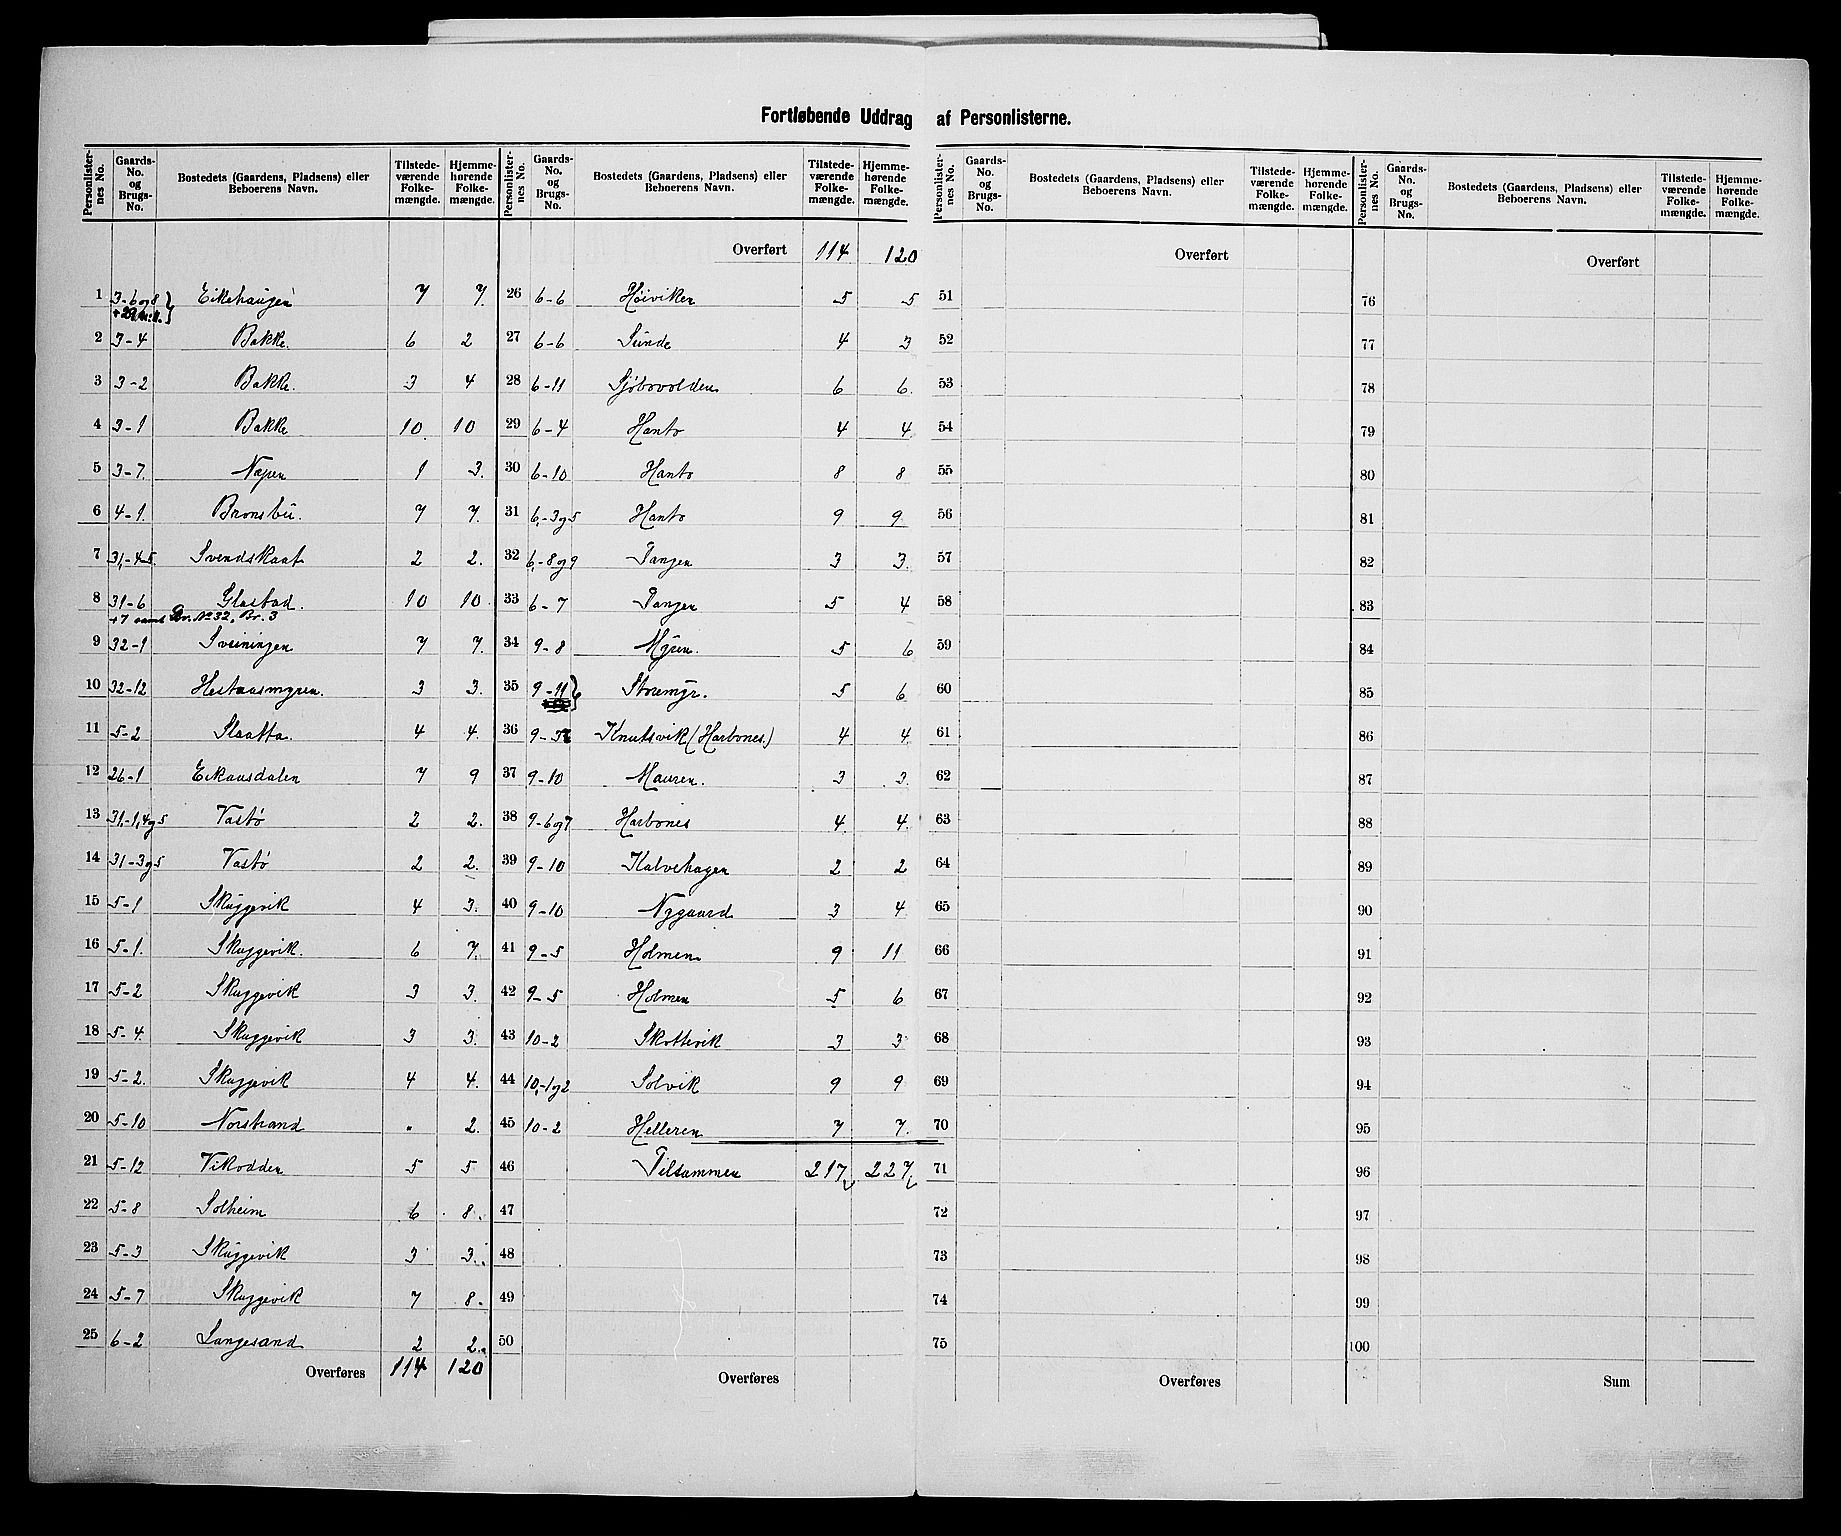 Fortløbende Uddrag af Personlisterne.
Personlisternes No. Gaards-No. og Brugs-No. Bostedets (Gaardens, Pladsens) eller Beboerens Navn. Tilstedeværende Folkemængde. Hjemmehørende Folkemængde.
1 3-6 og 8 Eikehaugen 7 7
2 3-4 Bakke. 6 2
3 3-2 Bakke. 3 4
4 3-1 Bakke 10 10
5 3-7. 1 3.
6 4-1. Bronsbu. 7 7.
7 31,-4-5. Svendskaat 2 2.
8 31-6 Glastad. 10 10.
+7 samt Gr. No 32, Br. 3
9 32-1 Sveiningen 7 7.
10 32-12 Hestaasmyren. 3 3.
11 5-2 Slaatta. 4 4.
12 26-1 Eikaasdalen 7 9
13 31,-1,4 og 5 Vastø 2 2.
14 31-3 og 5 Vastø 2 2.
15 5-1 Skuggevik 4 3.
16 5-1. Skuggevik. 6 7.
17 5-2 Skuggevik 3 3.
18 5-4. Skuggevik 3 3.
19 5-2. Skuggevik 4 4.
20 5-10 Norstrand " 2.
21 5-12 Vikodden 5 5
22 5-8 Solheim 6 8.
23 5-3 Skuggevik 3 3.
24 5-7 Skuggevik 7 8.
25 6-2 Langesand 2 2.
Overføres 114 120
Personlisternes No. Gaards-No. og Brugs-No. Bostedets (Gaardens, Pladsens) eller Beboerens Navn. Tilstedeværende Folkemængde. Hjemmehørende Folkemængde.
Overført 114 120
26 6-6 Høiviken 5 5
27 6-6 Sunde 4 3
28 6-11 Sjøbovolden 6 6.
29 6-4 Hanto 4 4
30 6-10 Hanto 8 8
31 6,-3 og 5 Hanto 9 9
32 6,-8 og 9 Tangen 3 3.
33 6-7 Tangen 5 4
34 9-8 Myren. 5 6
35 9-11 Storemyr. 5 6
36 Knutsvik (Harbones.) 4 4.
37 9-10 Mauren. 3 3.
38 9-6 og 7 Harbones 4 4.
39 9-10 Kalvehagen 2 2
40 9-10 Nygaard 3 4
41 9-5 Holmen 9 11
42 9-5 Holmen 5 6
43 10-2 Skottevik 3 3
44 10,-1 og 2 Solvik 9 9
45 10-2 Helleren 7 7.
46 Tilsammen 217 227
47
48
49
50
Overføres
Personlisternes No. Gaards-No. og Brugs-No. Bostedets (Gaardens, Pladsens) eller Beboerens Navn. Tilstedeværende Folkemængde. Hjemmehørende Folkemængde.
Overført
51
52
53
54
55
56
57
58
59
60
61
62
63
64
65
66
67
68
69
70
71
72
73
74
75
Overføres
Personlisternes No. Gaards-No. og Brugs-No. Bostedets (Gaardens, Pladsens) eller Beboerens Navn. Tilstedeværende Folkemængde. Hjemmehørende Folkemængde.
Overført
76
77
78
79
80
81
82
83
84
85
86
87
88
89
90
91
92
93
94
95
96
97
98
99
100
Sum